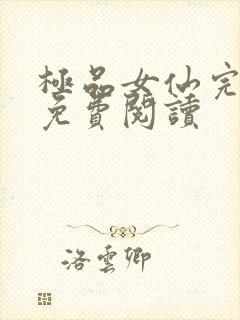 極品女仙完
免費閱讀
洛雲卿